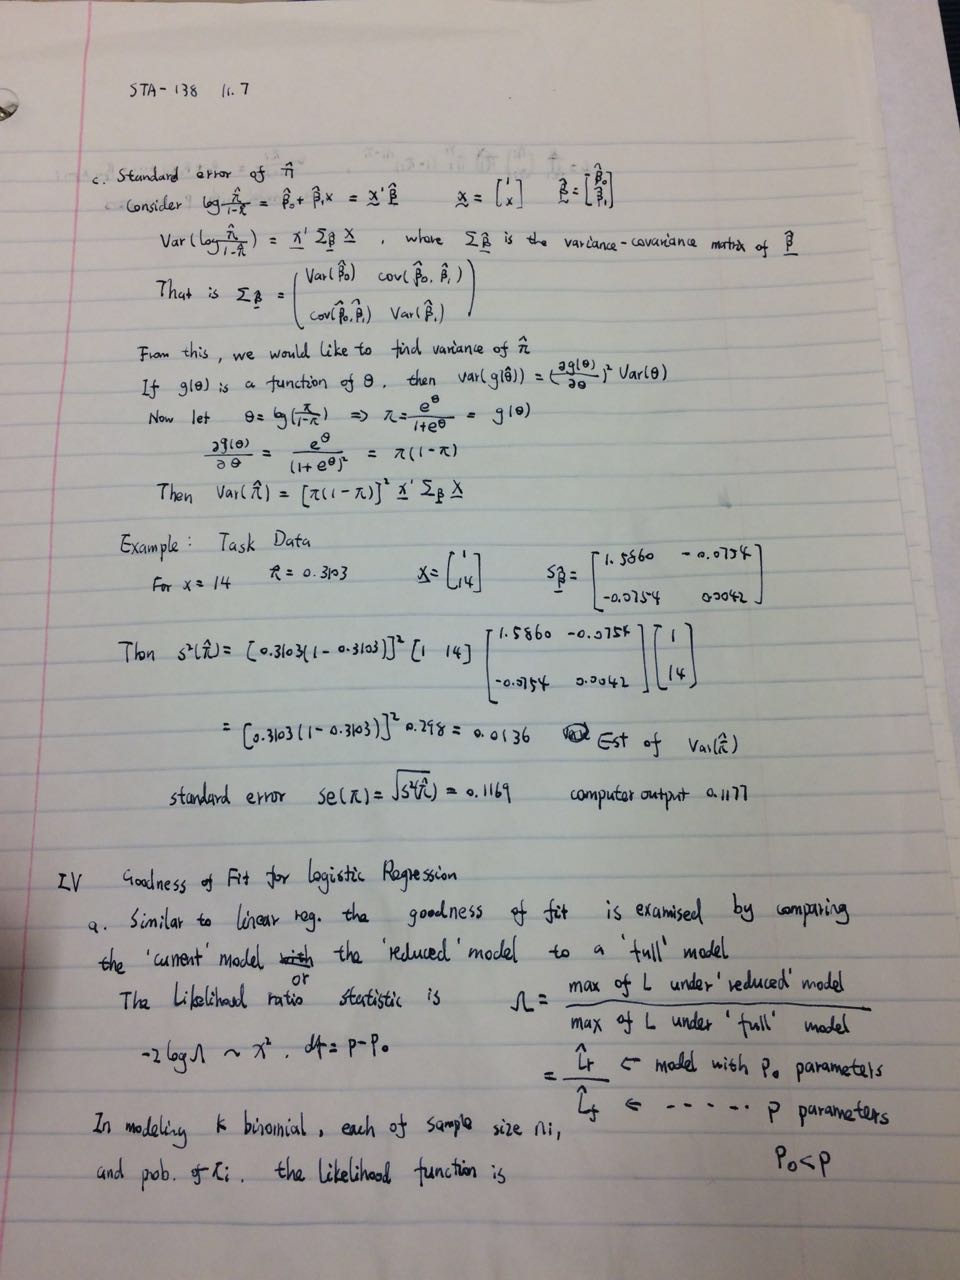 STA-138 11.7
c. Standard error of π̂
Consider log π̂/(1-π̂) = β̂₀ + β̂₁x = x'β̂   x = [1 x]   β̂ = [β̂₀ β̂₁]
Var(log π̂/(1-π̂)) = x' Σβ̂ x , where Σβ̂ is the variance-covariance matrix of β̂
That is Σβ̂ = ( Var(β̂₀) cov(β̂₀, β̂₁)
cov(β̂₀, β̂₁) Var(β̂₁) )
From this, we would like to find variance of π̂
If g(θ) is a function of θ, then var(g(θ̂)) = (∂g(θ)/∂θ)² Var(θ)
Now let θ = log(π/(1-π)) ⇒ π = e^θ/(1+e^θ) = g(θ)
∂g(θ)/∂θ = e^θ/(1+e^θ)² = π(1-π)
Then Var(π̂) = [π(1-π)]² x' Σβ x
Example: Task Data
For x = 14   π̂ = 0.3103   x = [1 14]   Sβ̂ = [1.5860 -0.0754
-0.0754 0.0042]
Then s²(π̂) = [0.3103(1-0.3103)]² [1 14] [1.5860 -0.0754
-0.0754 0.0042] [1 14]
= [0.3103(1-0.3103)]² 0.298 = 0.0136   Est of Var(π̂)
standard error se(π) = √s²(π̂) = 0.1169   computer output 0.1177
IV Goodness of Fit for Logistic Regression
a. Similar to linear reg. the goodness of fit is examised by comparing
the 'current' model or the 'reduced' model to a 'full' model
The Likelihood ratio statistic is   Λ = max of L under 'reduced' model / max of L under 'full' model
-2 log Λ ~ χ². df = p-p₀
= L̂r ← model with p₀ parameters
L̂f ← ------ p parameters
In modeling k binomial, each of sample size ni,
and prob. of πi. the likelihood function is   p₀<p